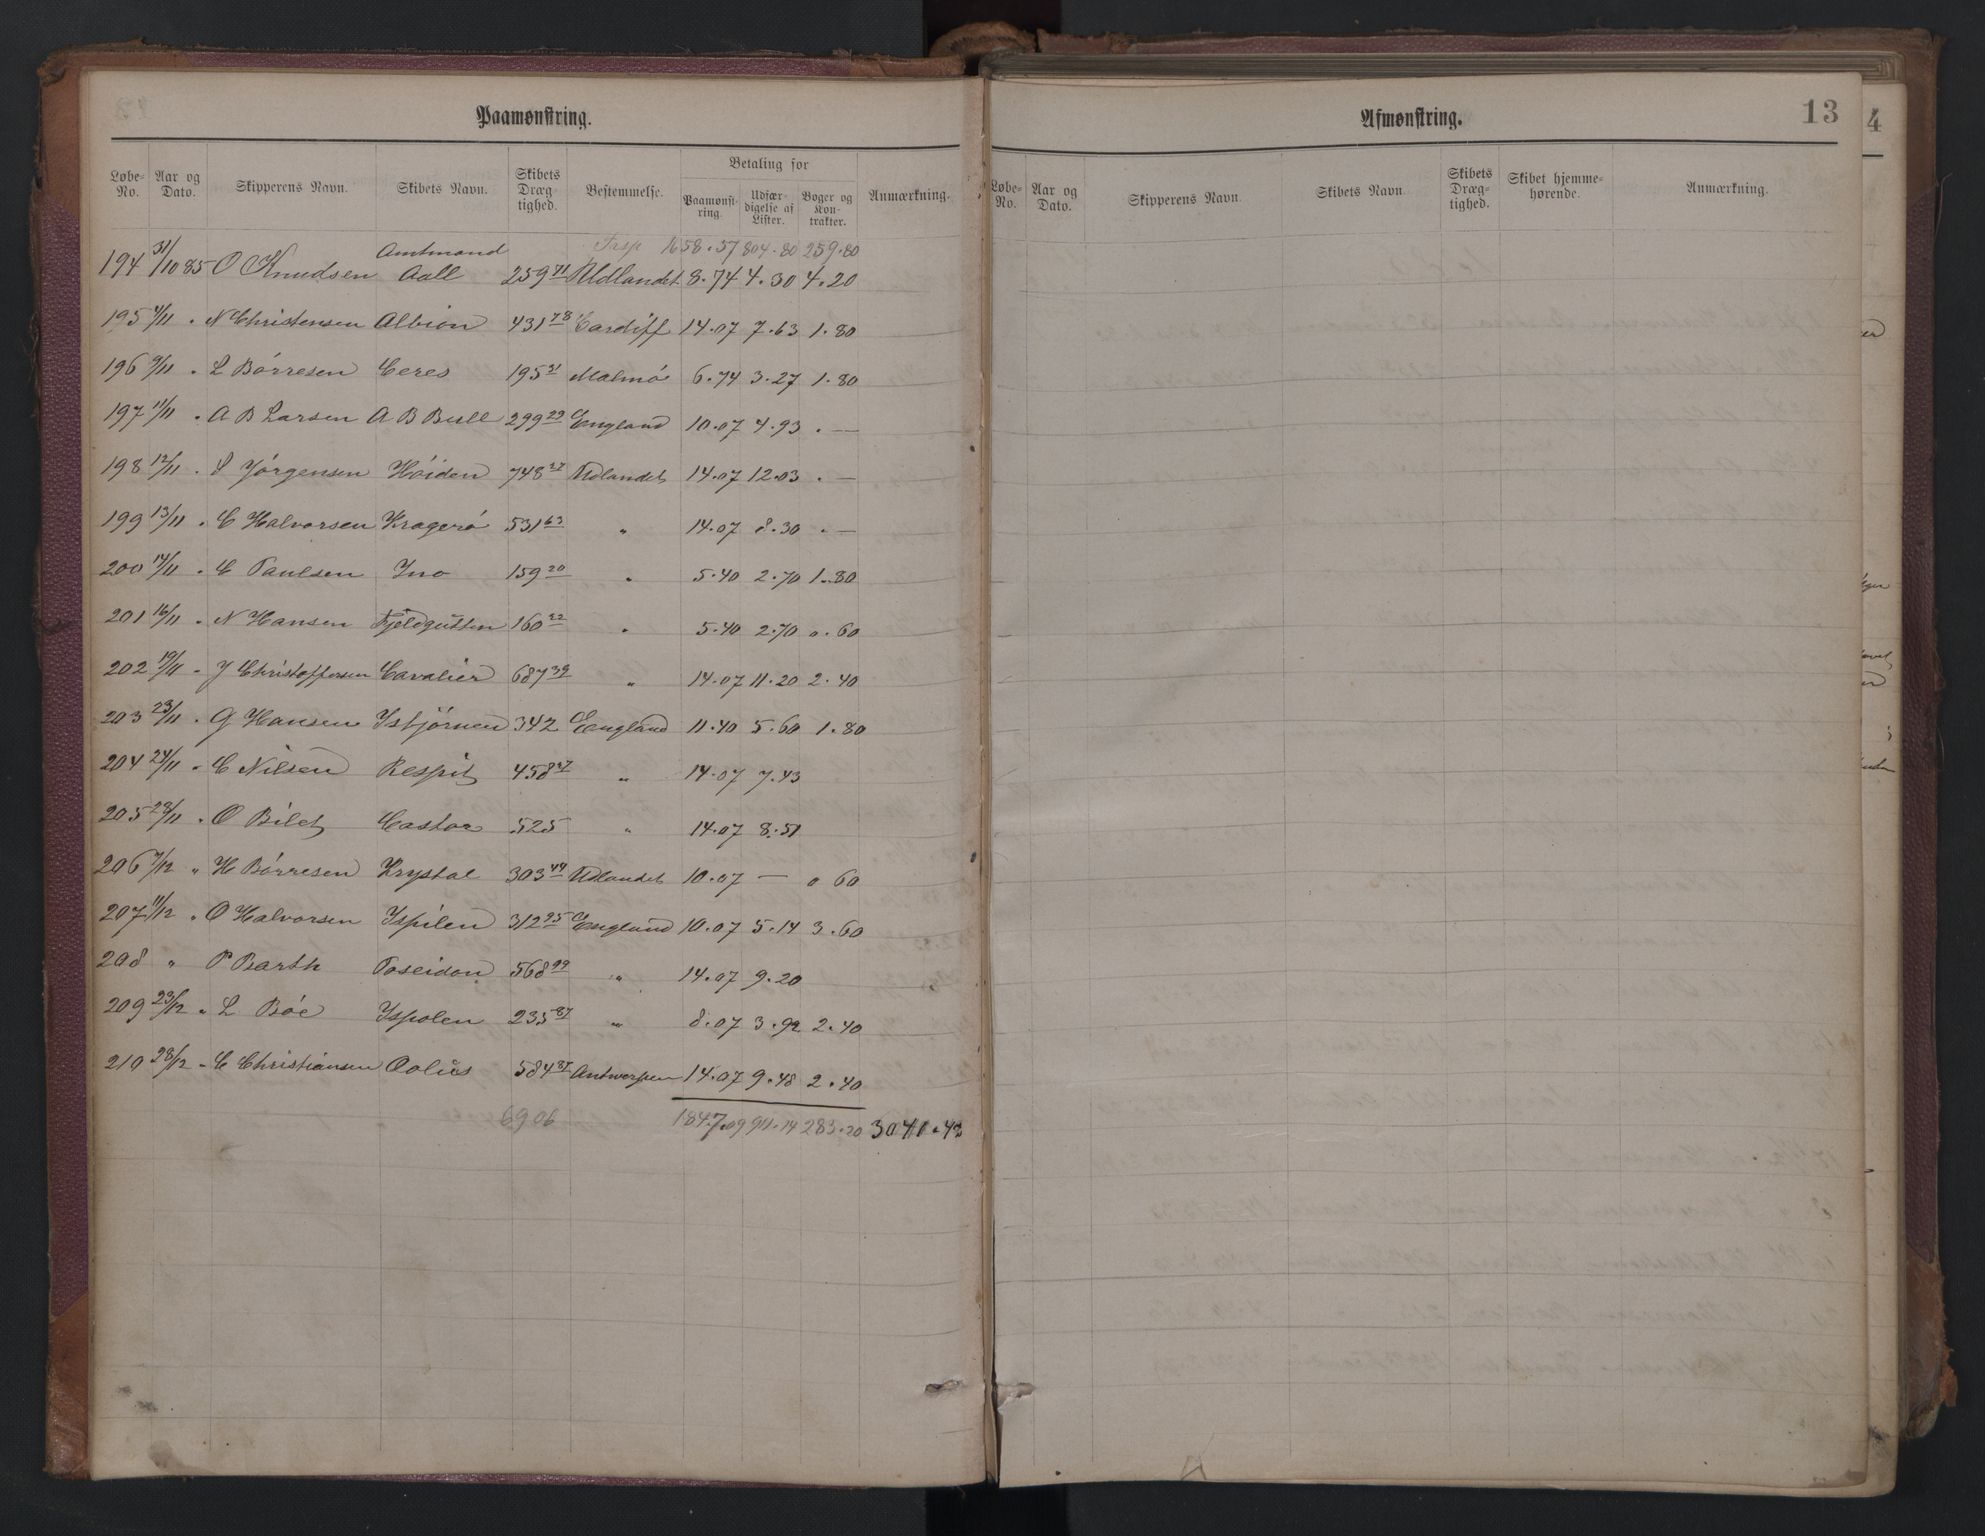 Paamønstring.
Løbe-No. Aar og Dato. Skipperens Navn. Skibets Navn. Skibets Dræg-tighed. Bestemmelse. Betaling for Paamønst-ring. Udfær-digelse af Lister. Bøger og Kon-trakter. Anmærkning.
Trsp 1658.57 804.80 259.80
194 31/10 85 O Knudsen Amtmand Aall 259 71 Udlandet 8.74 4.30 4.20
195 4/11 " N Christensen Albion 431 78 Cardiff 14.07 7.63 1.80
196 9/11 " L Börresen Ceres 195 31 Malmö 6.74 3.27 1.80
197 11/11 " A B Larsen A B Bull 299 29 England 10.07 4.93 . —
198 12/11 " S Jörgensen Höiden 748 27 Udlandet 14.07 12.03 . —
199 13/11 " C Halvorsen Kragerö 531 63 " 14.07 8.30 . —
200 14/11 " C Paulsen Ino 159 20 " 5.40 2.70 1.80
201 16/11 " N Hansen Fjeldgutten 160 22 " 5.40 2.70 0.60
202 19/11 " J Christoffersen Cavalier 687 39 " 14.07 11.20 2.40
203 23/11 " G Hansen Isbjörnen 342 England 11.40 5.60 1.80
204 24/11 " C Nilsen Respit 458 47 " 14.07 7.43
205 28/11 " O Bilet Castor 525 " 14.07 8.51
206 7/12 " H Börresen Krystal 303 44 Udlandet 10.07 — 0 60
207 11/12 " O Halvorsen Ispilen 312 95 England 10.07 5.14 3.60
208 " P Barth Poseidon 568 99 " 14.07 9.20
209 23/12 " L Böe Ispolen 235 87 " 8.07 3.92 2.40
210 28/12 " C Christiansen Æolus 584 87 Antwerpen 14.07 9.48 2.40
6906 1847.09 911.14 283.20 3041.43
Afmønstring.
13
4
Løbe-No. Aar og Dato. Skipperens Navn. Skibets Navn. Skibets Dræg-tighed. Skibet hjemme-hørende. Anmærkning.